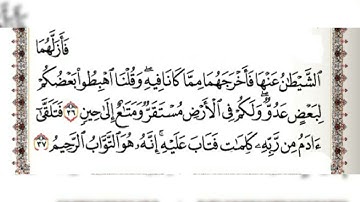 فَأَزَلَّهُمَا
ٱلشَّيْطَٰنُ عَنْهَا فَأَخْرَجَهُمَا مِمَّا كَانَا فِيهِ ۖ وَقُلْنَا ٱهْبِطُوا۟ بَعْضُكُمْ
لِبَعْضٍ عَدُوٌّ ۖ وَلَكُمْ فِى ٱلْأَرْضِ مُسْتَقَرٌّ وَمَتَٰعٌ إِلَىٰ حِينٍ ٣٦ فَتَلَقَّىٰٓ
ءَادَمُ مِن رَّبِّهِۦ كَلِمَٰتٍ فَتَابَ عَلَيْهِ ۚ إِنَّهُۥ هُوَ ٱلتَّوَّابُ ٱلرَّحِيمُ ٣٧